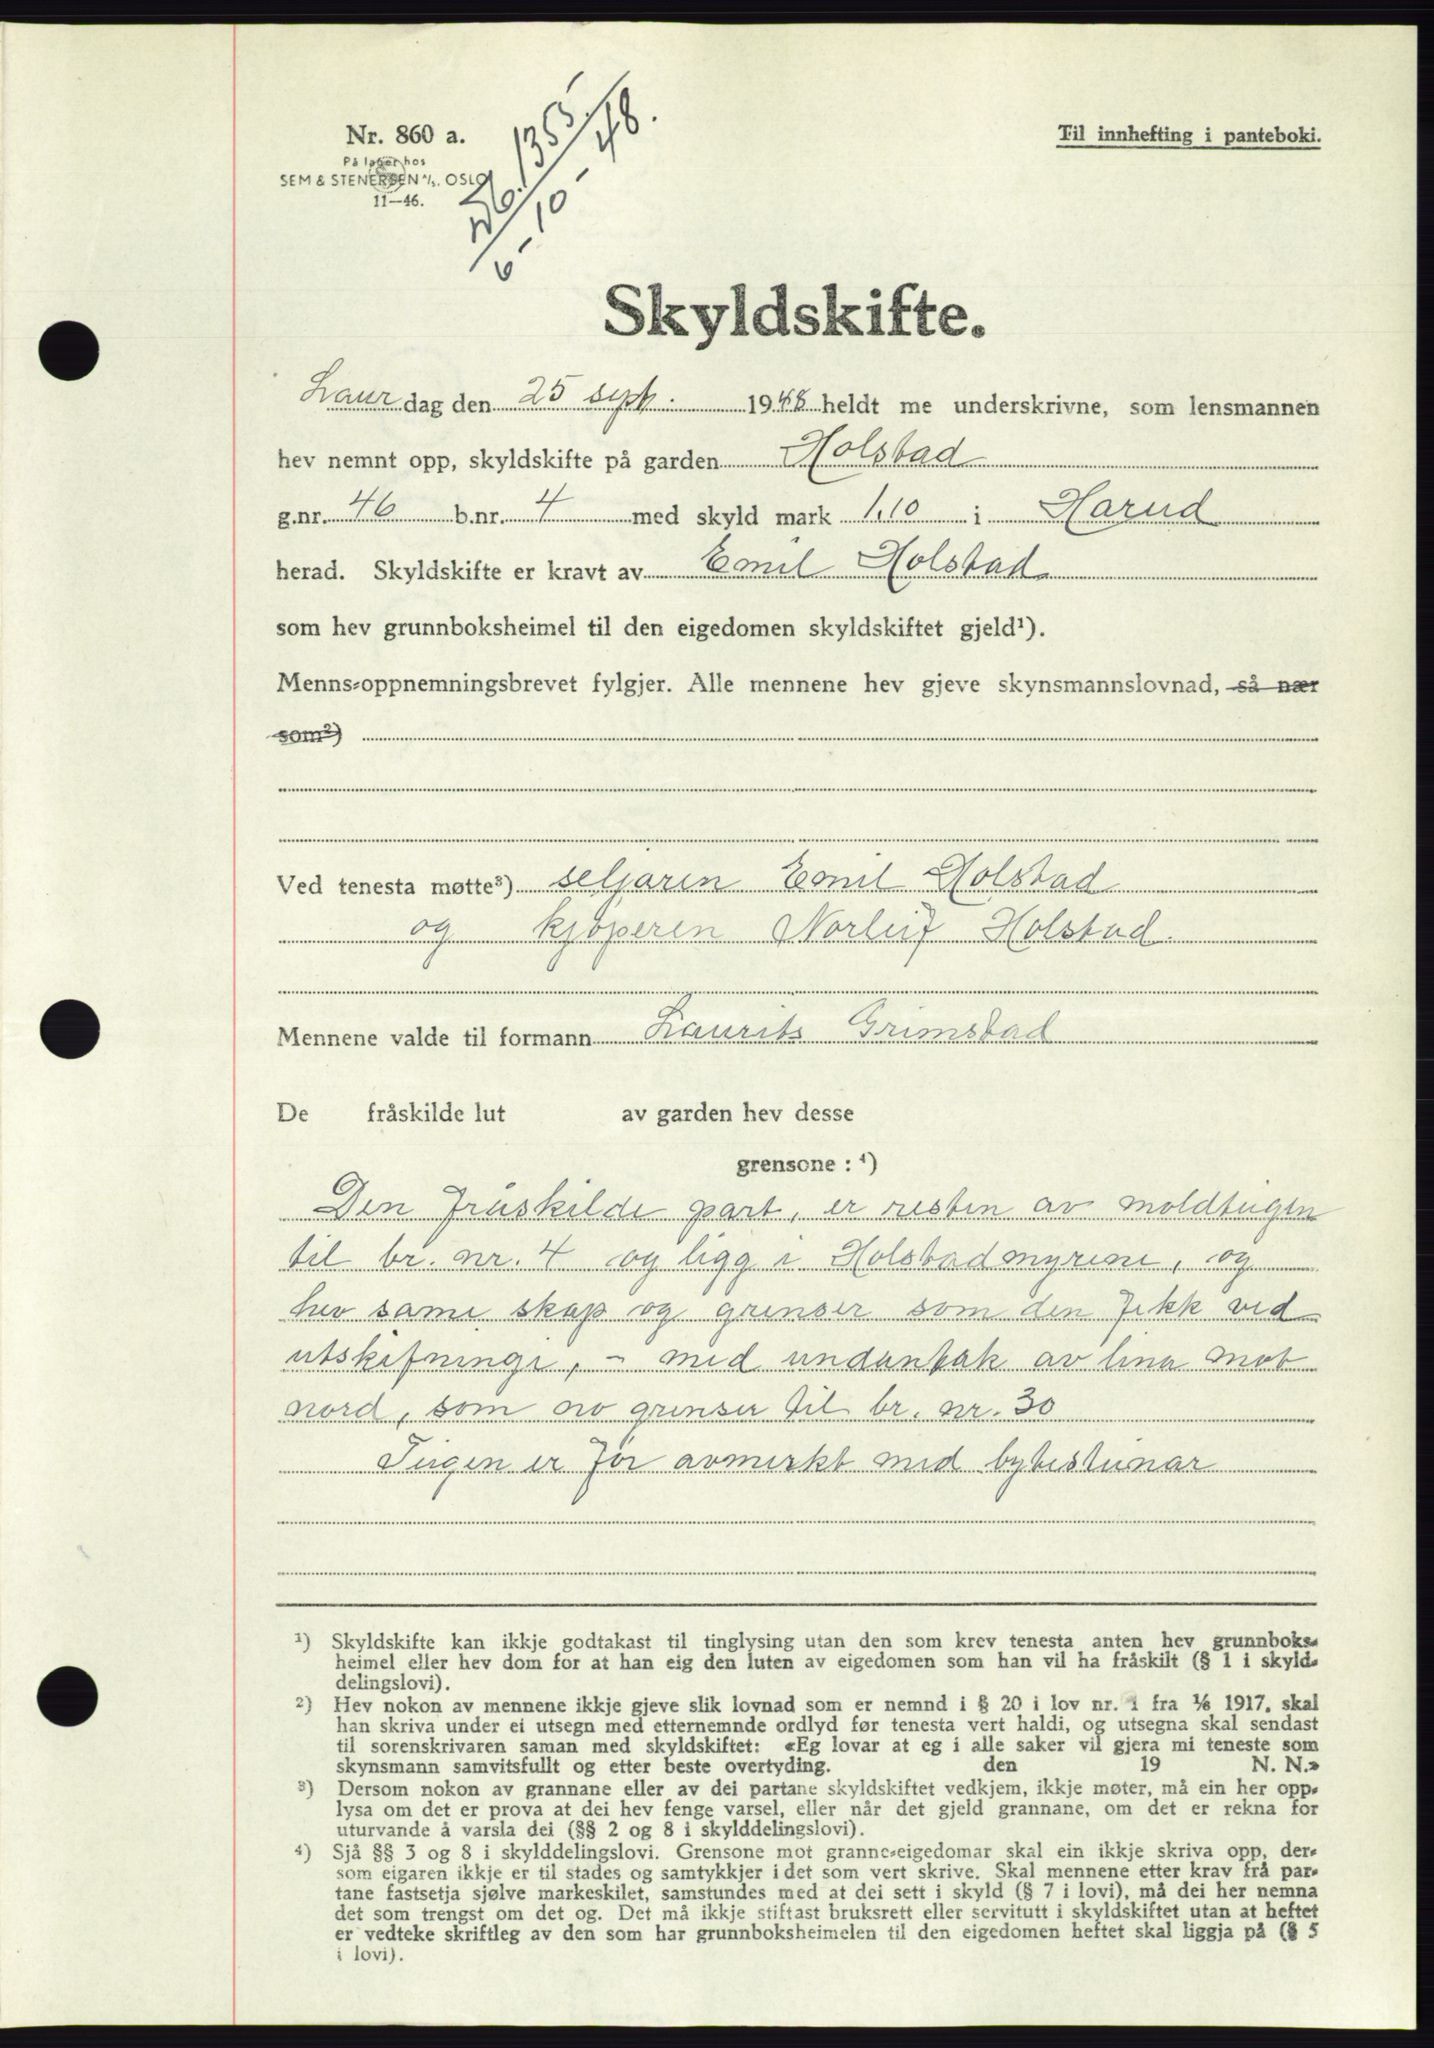 Nr. 860 a.
På lager hos
SEM & STENERSEN A/S. OSLO
11—46.
Db. 1355
6-10-48.
Til innhefting i panteboki.
Skyldskifte.
Laurdag den 25 sept. 1948 heldt me underskrivne, som lensmannen
hev nemnt opp, skyldskifte på garden Holstad
g.nr. 46 b.nr. 4 med skyld mark 1.10 i Harud
herad. Skyldskifte er kravt av Emil Holstad
som hev grunnboksheimel til den eigedomen skyldskiftet gjeld¹).
Menns-oppnemningsbrevet fylgjer. Alle mennene hev gjeve skynsmannslovnad, så nær
som²)
Ved tenesta møtte³) seljaren Emil Holstad
og kjøperen Norleif Holstad.
Mennene valde til formann Laurits Grimstad
De fråskilde lut av garden hev desse
grensone : ⁴)
Den fråskilde part, er resten av moldteigen
til br. nr. 4 og ligg i Holstadmyrene, og
hev same skap og grenser som den fekk ved
utskifninge, - med undantak av lina mot
nord, som no grenser til br. nr. 30
Teigen er før avmerkt med bytesteinar
¹) Skyldskifte kan ikkje godtakast til tinglysing utan den som krev tenesta anten hev grunnboks-
heimel eller hev dom for at han eig den luten av eigedomen som han vil ha fråskilt (§ 1 i skyld-
delingslovi).
²) Hev nokon av mennene ikkje gjeve slik lovnad som er nemnd i § 20 i lov nr. 1 fra ⅙ 1917, skal
han skriva under ei utsegn med etternemnde ordlyd før tenesta vert haldi, og utsegna skal sendast
til sorenskrivaren saman med skyldskiftet: «Eg lovar at eg i alle saker vil gjera mi teneste som
skynsmann samvitsfullt og etter beste overtyding. den 19 N. N.»
³) Dersom nokon av grannane eller av dei partane skyldskiftet vedkjem, ikkje møter, må ein her opp-
lysa om det er prova at dei hev fenge varsel, eller når det gjeld grannane, om det er rekna for
uturvande å varsla dei (§§ 2 og 8 i skylddelingslovi).
⁴) Sjå §§ 3 og 8 i skylddelingslovi. Grensone mot granne-eigedomar skal ein ikkje skriva opp, der-
som eigaren ikkje er til stades og samtykkjer i det som vert skrive. Skal mennene etter krav frå par-
tane fastsetja sjølve markeskilet, samstundes med at dei sett i skyld (§ 7 i lovi), må dei her nemna
det som trengst om det og. Det må ikkje stiftast bruksrett eller servitutt i skyldskiftet utan at heftet
er vedteke skriftleg av den som har grunnboksheimelen til den eigedomen heftet skal liggja på (§ 5
i lovi).